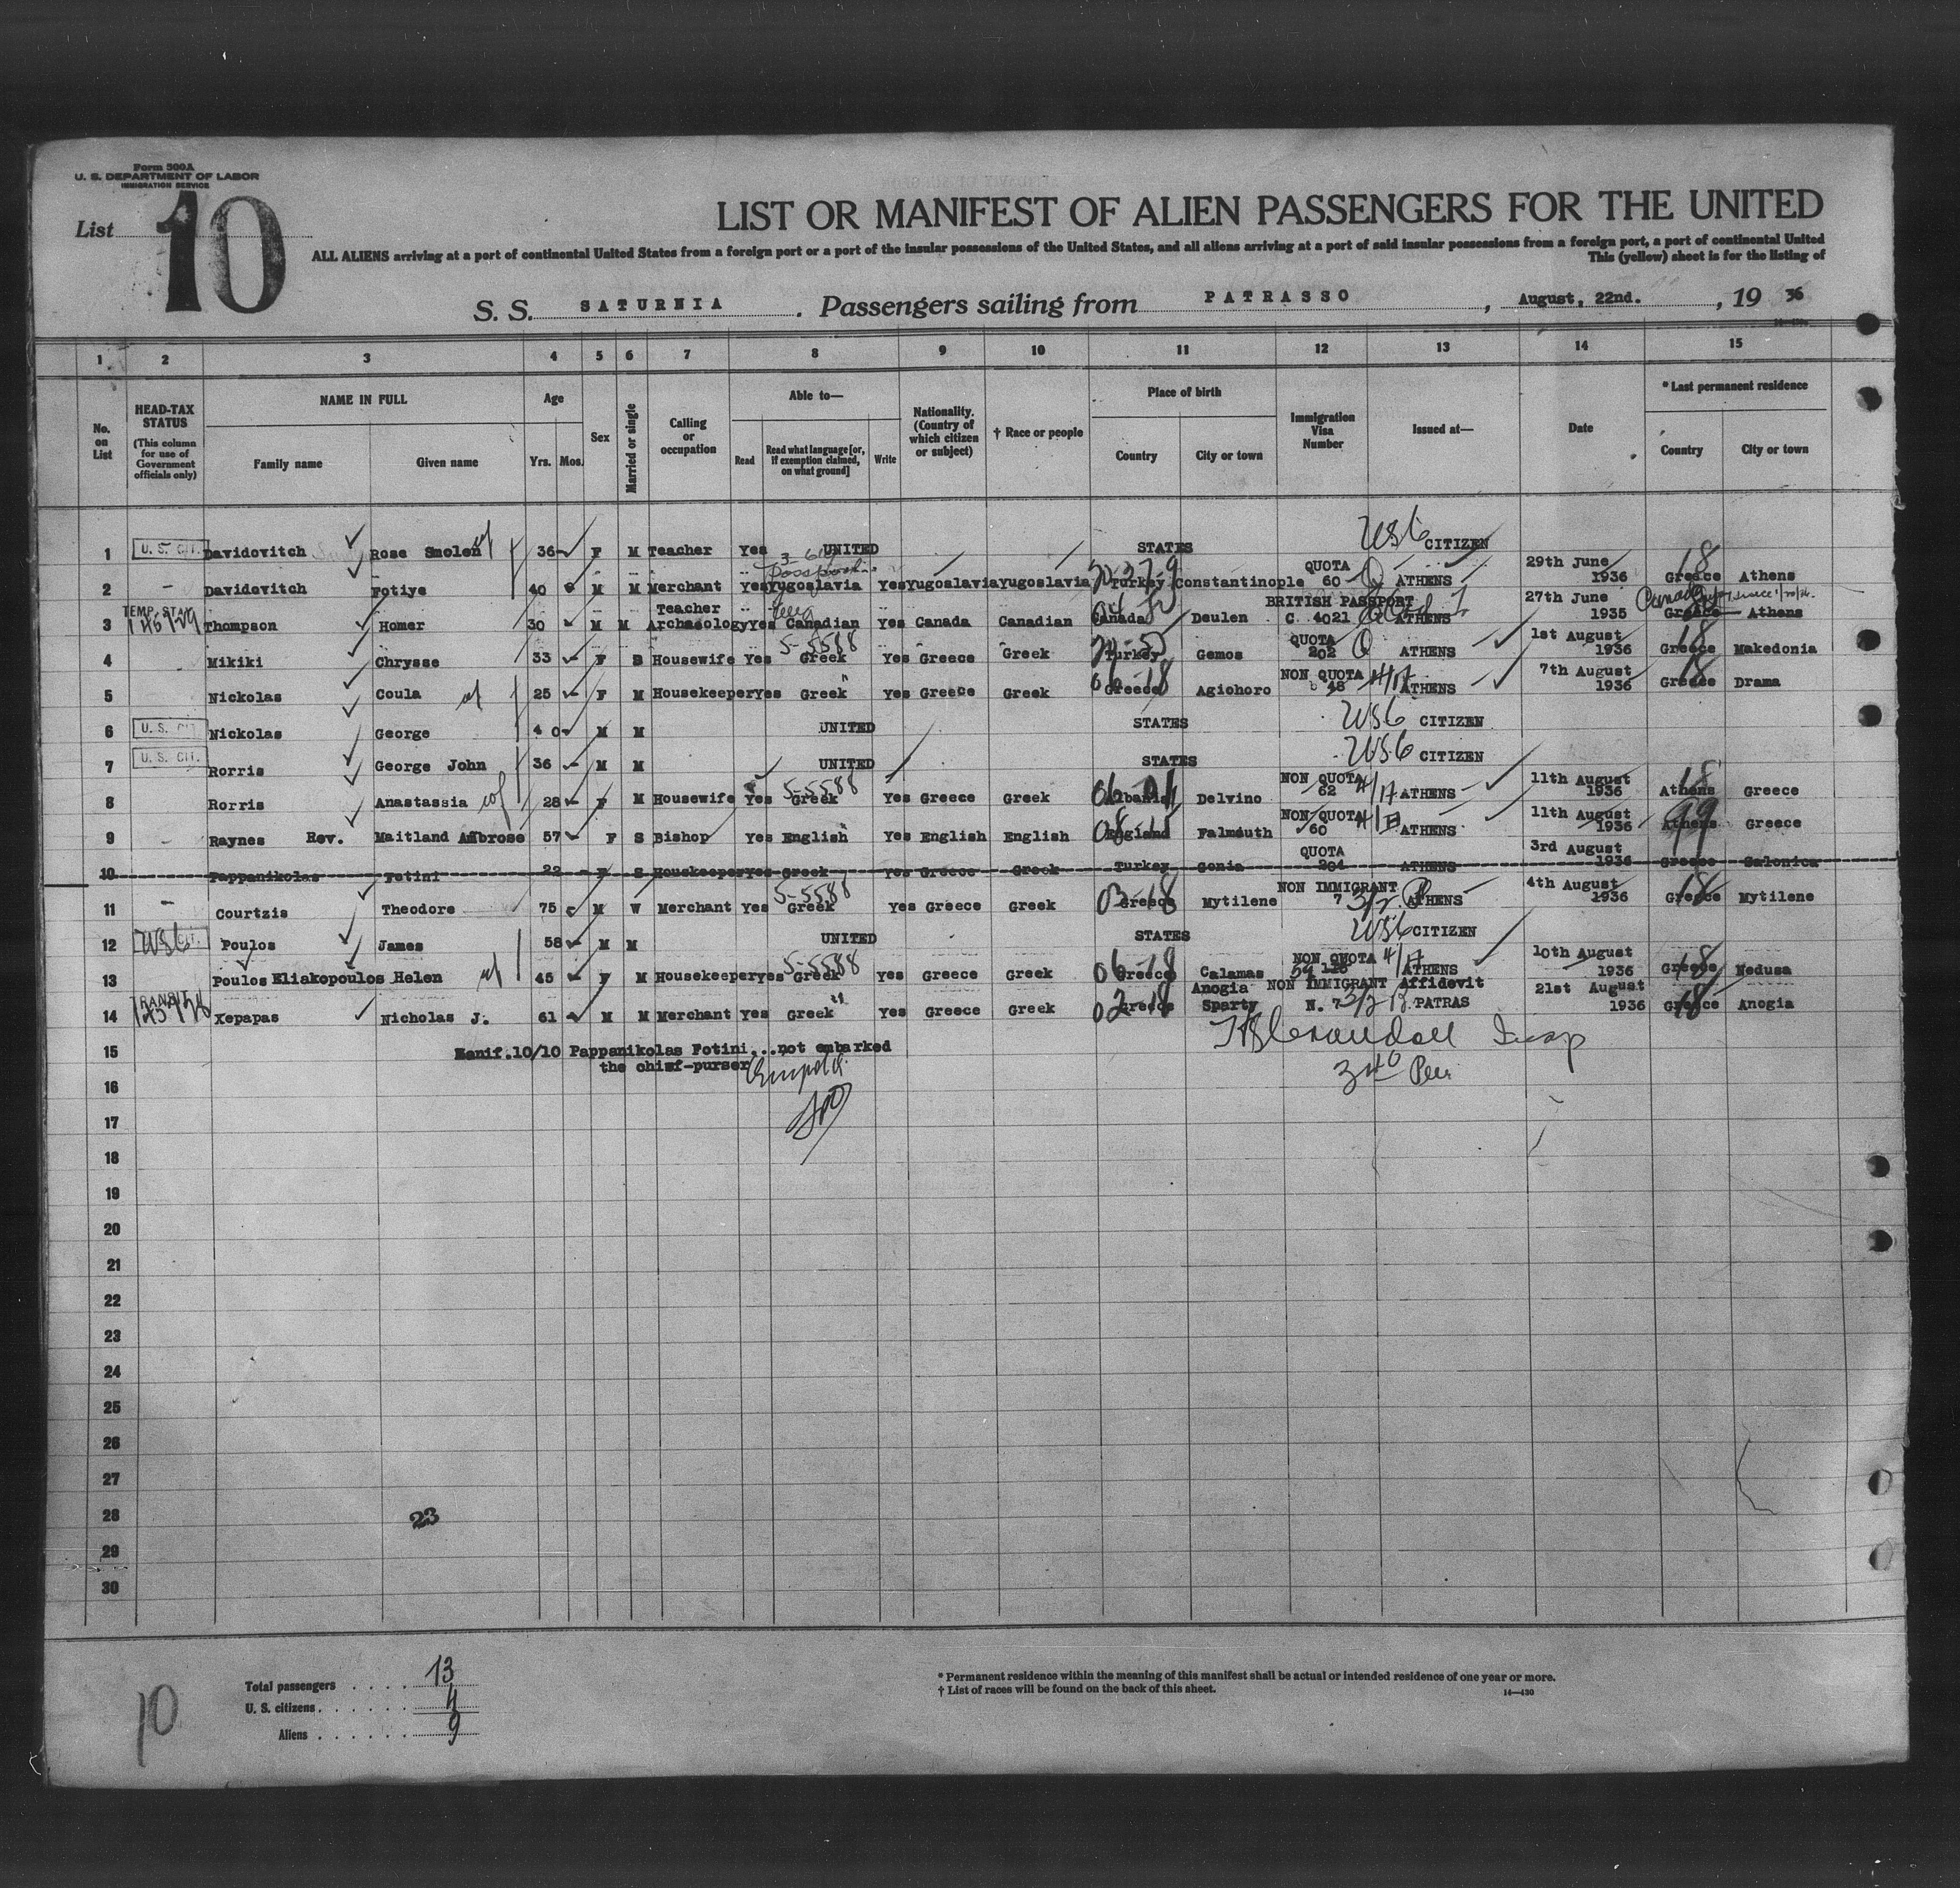 Form 500A
U. S. DEPARTMENT OF LABOR
IMMIGRATION SERVICE
List 10
LIST OR MANIFEST OF ALIEN PASSENGERS FOR THE UNITED
ALL ALIENS arriving at a port of continental United States from a foreign port or a port of the insular possessions of the United States, and all aliens arriving at a port of said insular possessions from a foreign port, a port of continental United
This (yellow) sheet is for the listing of
S. S. SATURNIA . Passengers sailing from PATRASSO , August, 22nd. , 19 36
1 2 3 4 5 6 7 8 9 10 11 12 13 14 15
No. on List
HEAD-TAX STATUS (This column for use of Government officials only)
NAME IN FULL Family name Given name
Age Yrs. Mos.
Sex
Married or single
Calling or occupation
Able to— Read Read what language [or, if exemption claimed, on what ground] Write
Nationality. (Country of which citizen or subject)
† Race or people
Place of birth Country City or town
Immigration Visa Number
Issued at—
Date
* Last permanent residence Country City or town
1 U. S. CIT. Davidovitch Rose Smolen 36 F M Teacher Yes UNITED STATES USC CITIZEN
2 - Davidovitch Fotiye 40 M M Merchant Yes Yugoslavia Yes Yugoslavia Yugoslavia Turkey Constantinople QUOTA 60 Q ATHENS 29th June 1936 18 Greece Athens
3 TEMP. STAY Thompson Homer 30 M M Teacher Archaeology Yes Canadian Yes Canada Canadian Canada Deulen BRITISH PASSPORT C. 4021 ATHENS 27th June 1935 Canada Greece Athens
4 Mikiki Chrysse 33 F S Housewife Yes 5-5588 Greek Yes Greece Greek Turkey Gemos QUOTA 202 Q ATHENS 1st August 1936 18 Greece Makedonia
5 Nickolas Coula 25 F M Housekeeper yes Greek Yes Greece Greek 06-18 Greece Agiohoro NON QUOTA 48 ATHENS 7th August 1936 18 Greece Drama
6 U. S. CIT. Nickolas George 40 M M UNITED STATES USC CITIZEN
7 U. S. CIT. Rorris George John 36 M M UNITED STATES USC CITIZEN
8 Rorris Anastassia 28 F M Housewife Yes 5-5588 Greek Yes Greece Greek Albania Delvino NON QUOTA 62 ATHENS 11th August 1936 18 Athens Greece
9 - Raynes Rev. Maitland Ambrose 57 F S Bishop Yes English Yes English English England Falmouth NON QUOTA 60 ATHENS 11th August 1936 99 Athens Greece
10 Pappanikolas Fotini 22 F S Housekeeper yes Greek Yes Greece Greek Turkey Gonia QUOTA 204 ATHENS 3rd August 1936 Greece Salonica
11 - Courtzis Theodore 75 M W Merchant Yes 5-5588 Greek Yes Greece Greek 03-18 Greece Mytilene NON IMMIGRANT 7 3/2 ATHENS 4th August 1936 18 Greece Mytilene
12 USC Poulos James 58 M M UNITED STATES USC CITIZEN
13 Poulos Eliakopoulos Helen 45 F M Housekeeper yes 5-5588 Greek Yes Greece Greek 06-18 Greece Calamas NON QUOTA ATHENS 10th August 1936 18 Greece Nedusa
14 TRANSIT Xepapas Nicholas J. 61 M M Merchant Yes Greek Yes Greece Greek 02-18 Greece Anogia Sparty NON IMMIGRANT Affidevit N. 7 3/2 PATRAS 21st August 1936 18 Greece Anogia
15 Manif.10/10 Pappanikolas Fotini...not embarked
the chief-purser
16
17
18
19
20
21
22
23
24
25
26
27
28 23
29
30
10
Total passengers . . . . 13
U. S. citizens . . . . . . 4
Aliens . . . . . . 9
* Permanent residence within the meaning of this manifest shall be actual or intended residence of one year or more.
† List of races will be found on the back of this sheet.
14—430